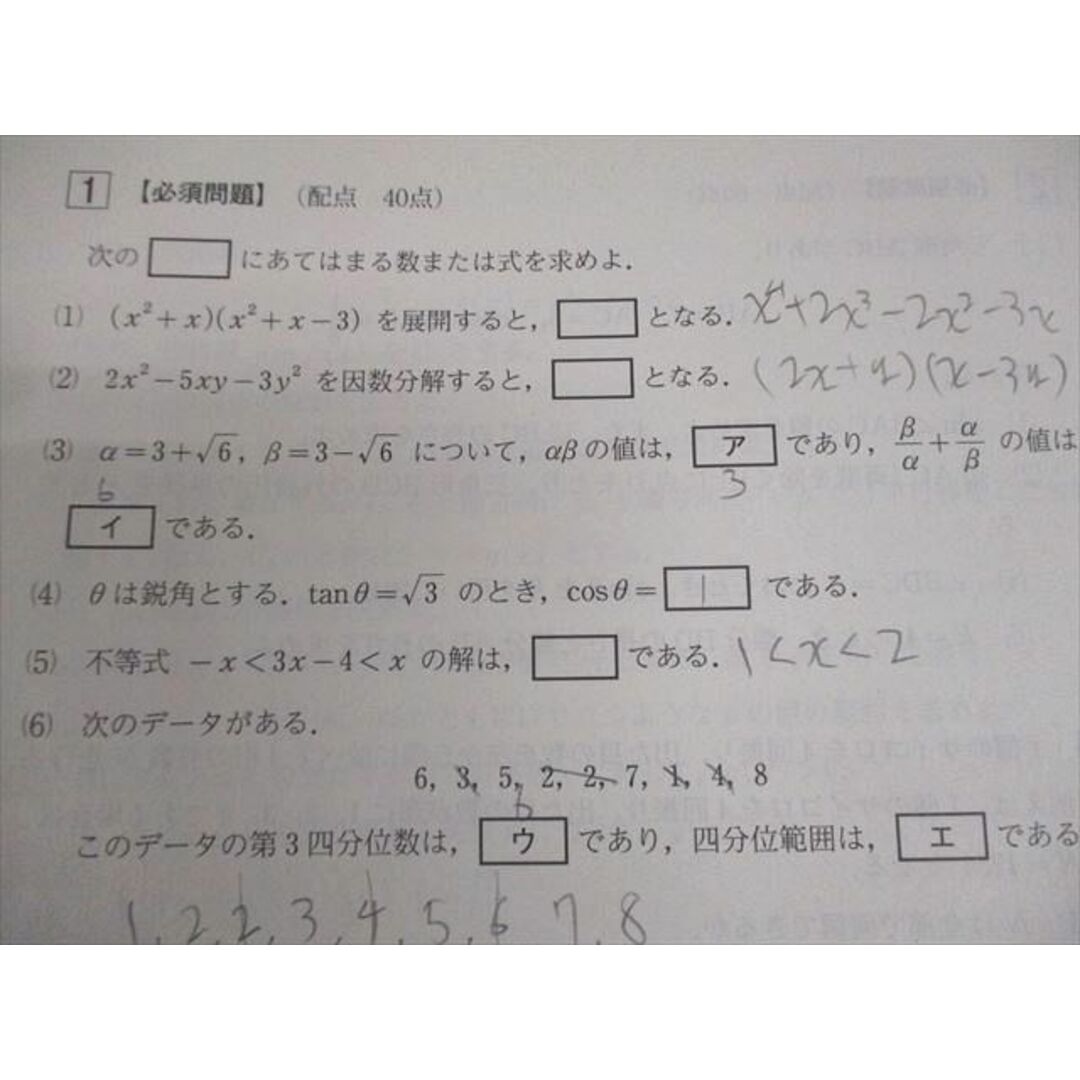 1 【必須問題】 (配点 40点)
次の□にあてはまる数または式を求めよ.
(1) (x²+x)(x²+x-3) を展開すると, □ となる. x⁴+2x³-2x²-3x
(2) 2x²-5xy-3y² を因数分解すると, □ となる. (2x+y)(x-3y)
(3) α=3+√6, β=3-√6 について, αβの値は, ア であり, β/α+α/β の値は
6 3
イ である.
(4) θは鋭角とする. tanθ=√3 のとき, cosθ= □ である.
(5) 不等式 -x<3x-4<x の解は, □ である. 1<x<2
(6) 次のデータがある.
6, 3, 5, 2, 2, 7, 1, 4, 8
6
このデータの第3四分位数は, ウ であり, 四分位範囲は, エ である
1, 2, 2, 3, 4, 5, 6 7, 8